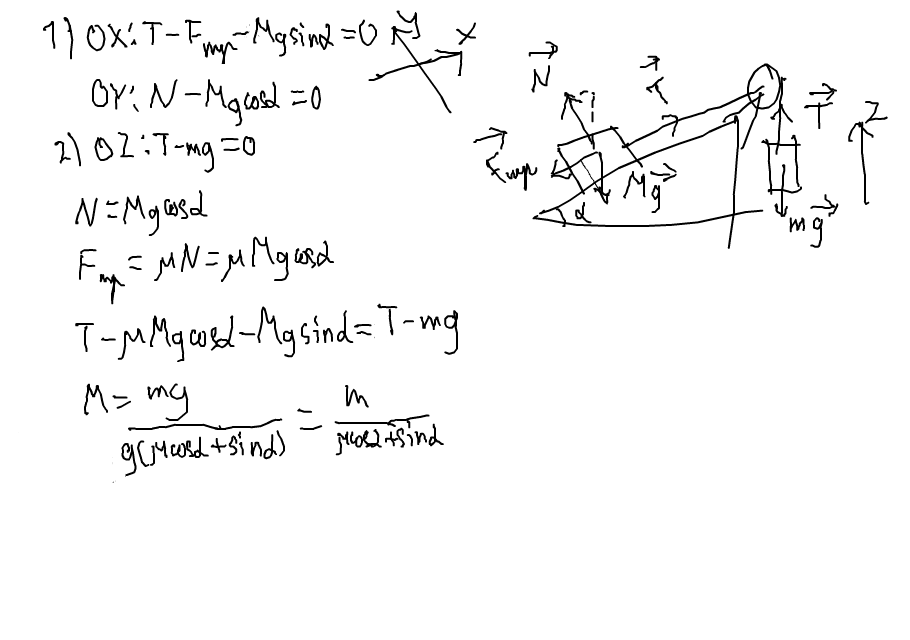 1) OX: T - Fтр - Mgsinα = 0
OY: N - Mgcosα = 0
2) OZ: T - mg = 0
N = Mgcosα
Fтр = μN = μMgcosα
T - μMgcosα - Mgsinα = T - mg
M = mg / g(μcosα + sinα) = m / μcosα + sinα
y
x
N
T
Fтр
Mg
α
T
Z
mg